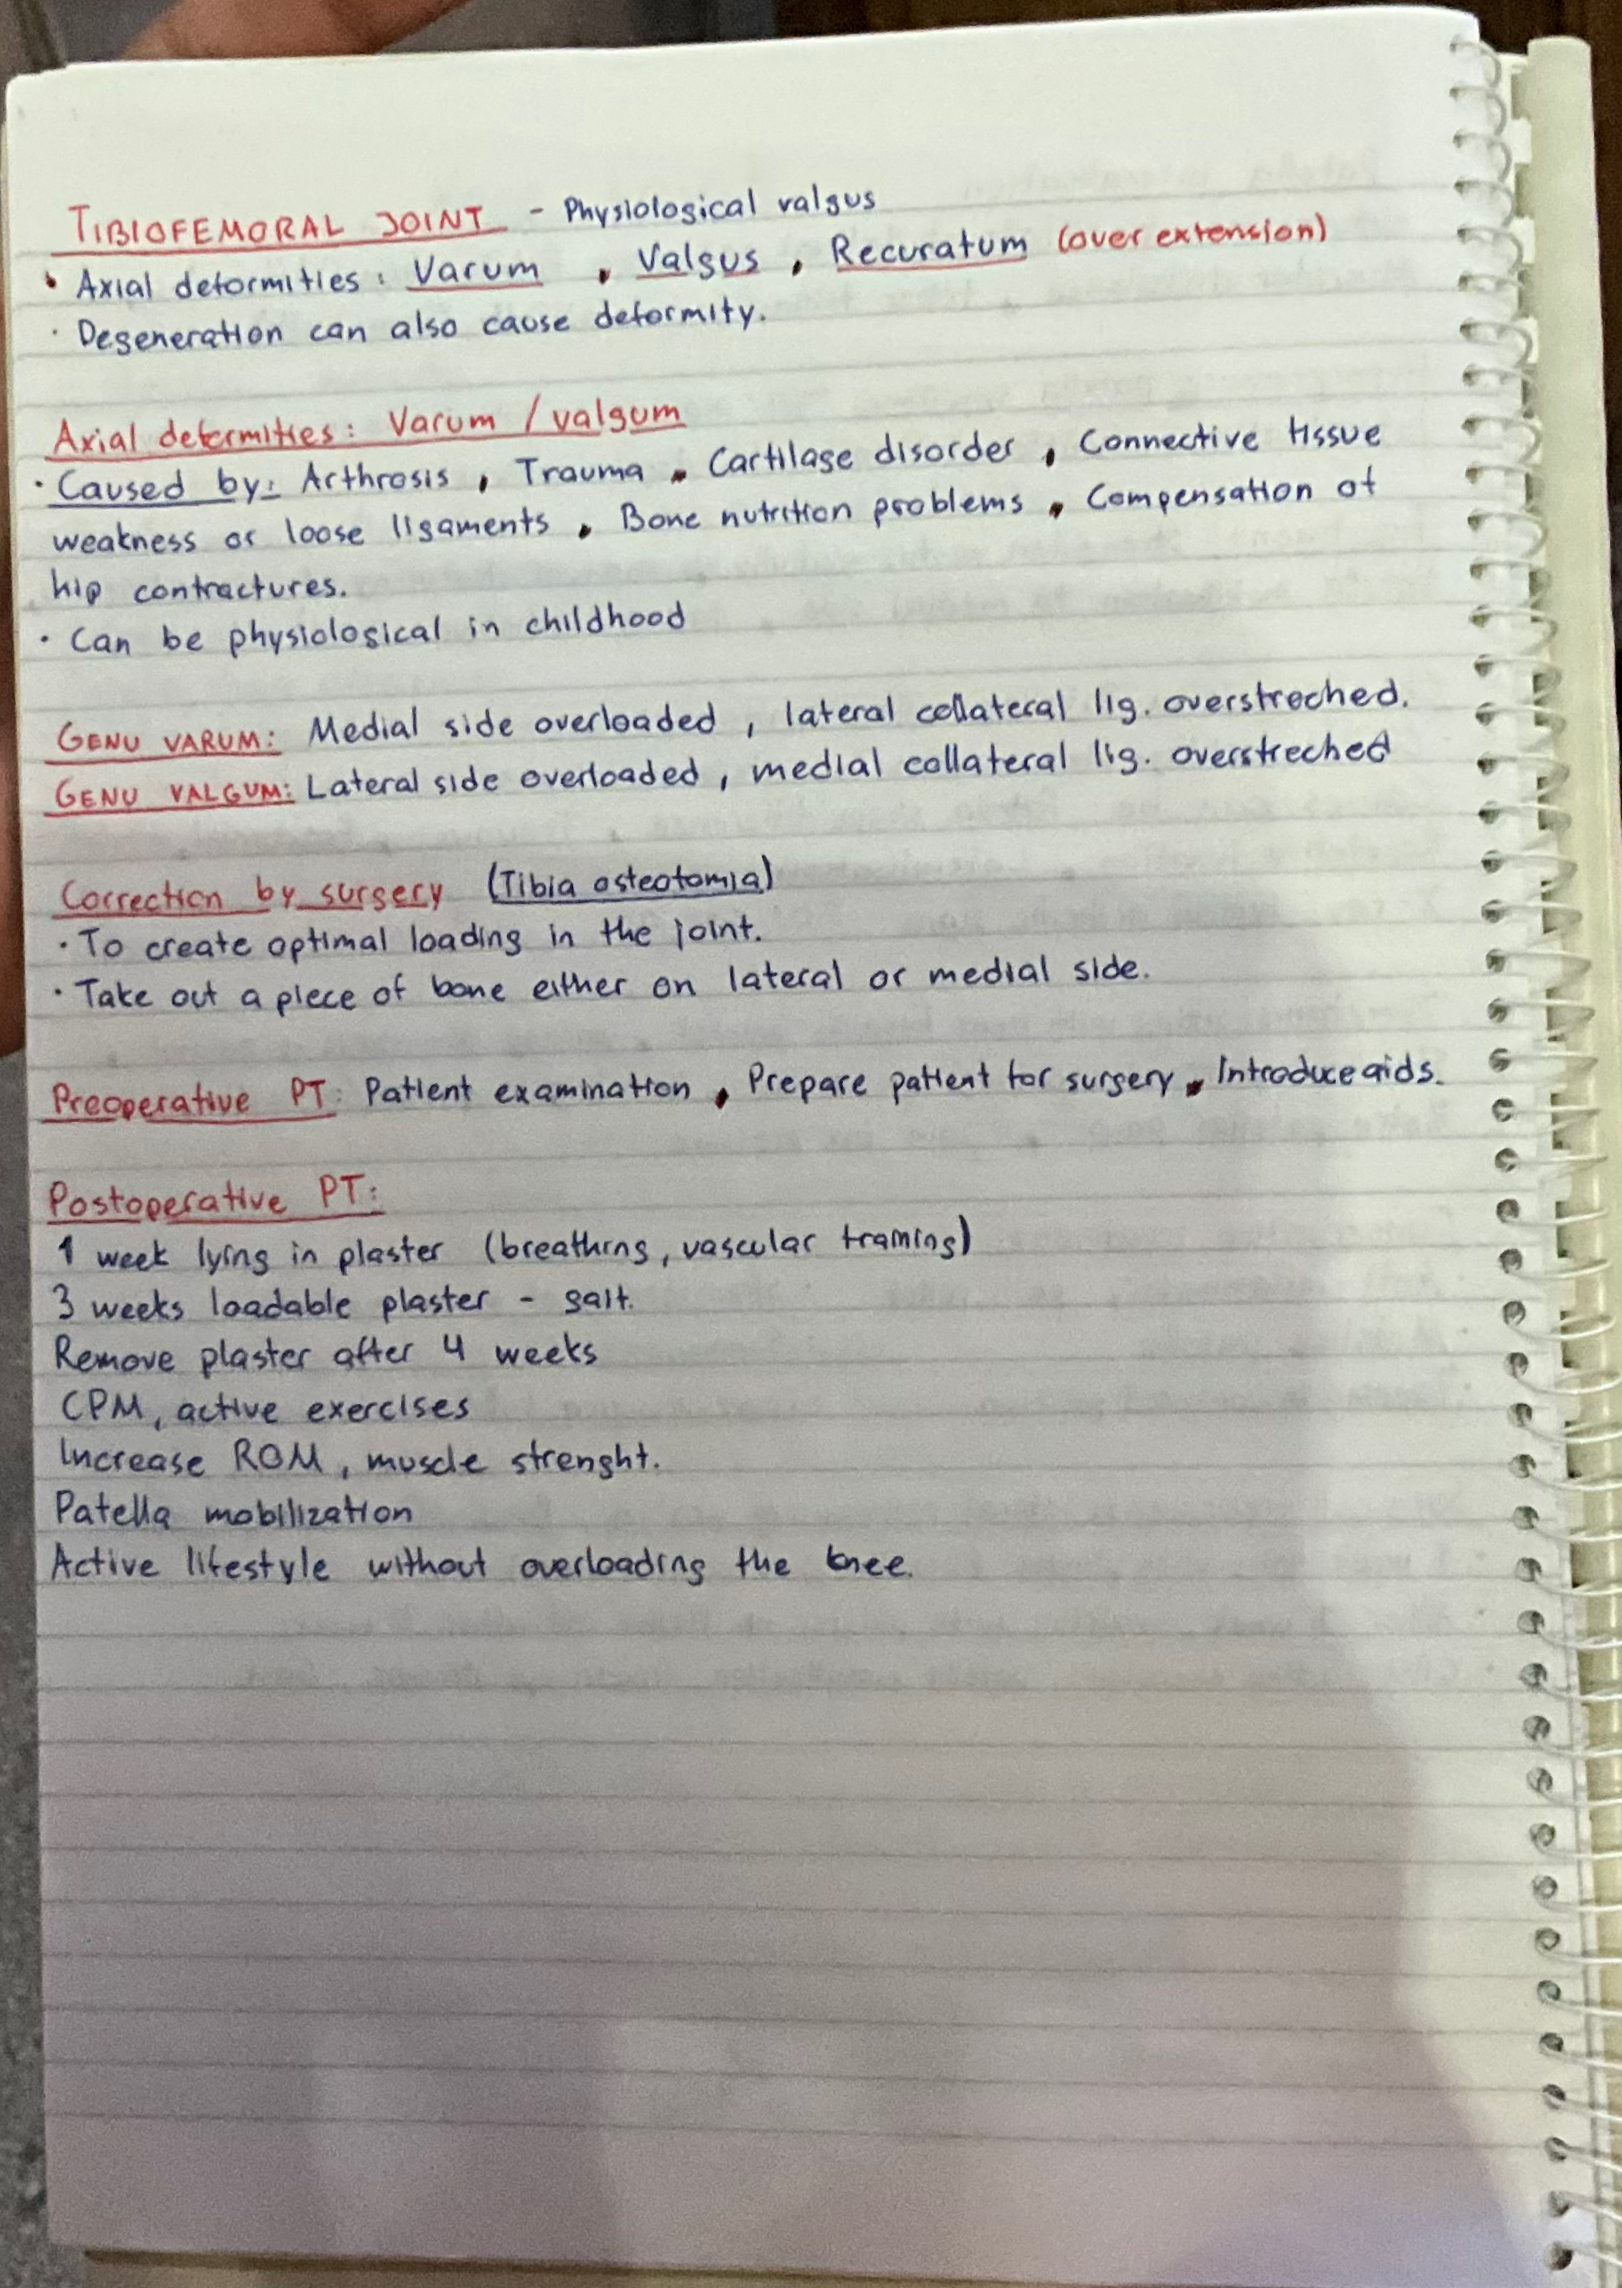 TIBIOFEMORAL JOINT - Physiological valgus
• Axial deformities: Varum , Valgus , Recuratum (over extension)
• Degeneration can also cause deformity.
Axial deformities: Varum / valgum
• Caused by: Arthrosis , Trauma , Cartilage disorder , Connective tissue
weakness or loose ligaments , Bone nutrition problems , Compensation of
hip contractures.
• Can be physiological in childhood
GENU VARUM: Medial side overloaded , lateral collateral lig. overstreched.
GENU VALGUM: Lateral side overloaded , medial collateral lig. overstreched
Correction by surgery (Tibia osteotomia)
• To create optimal loading in the joint.
• Take out a piece of bone either on lateral or medial side.
Preoperative PT: Patient examination , Prepare patient for surgery , Introduce aids.
Postoperative PT:
1 week lying in plaster (breathing, vascular training)
3 weeks loadable plaster - gait.
Remove plaster after 4 weeks
CPM, active exercises
Increase ROM, muscle strenght.
Patella mobilization
Active lifestyle without overloading the knee.